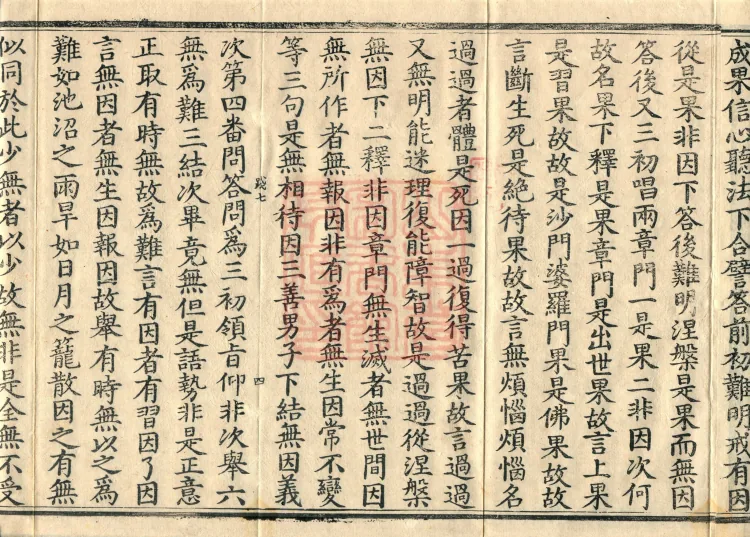 成果信心聽法下合譬答前初難明戒有因
從是果非因下答後難明涅槃是果而無因
答後又三初唱兩章門一是果二非因次何
故名果下釋是果章門是出世果故言上果
是習果故故是沙門婆羅門果是佛果故故
言斷生死是絶待果故故言無煩惱煩惱名
過過者體是死因一過復得苦果故言過過
又無明能迷理復能障智故是過過從涅槃
無因下二釋非因章門無生滅者無世間因
無所作者無報因非有爲者無生因常不變
等三句是無相待因三善男子下結無因義
㦮七 四
次第四番問答問爲三初領旨仰非次舉六
無爲難三結次畢竟無但是語勢非是正意
正取有時無故爲難言有因者有習因了因
言無因者無生因報因故舉有時無以之爲
難如池沼之雨旱如日月之籠散因之有無
似同於此少無者以少故無非是全無不受